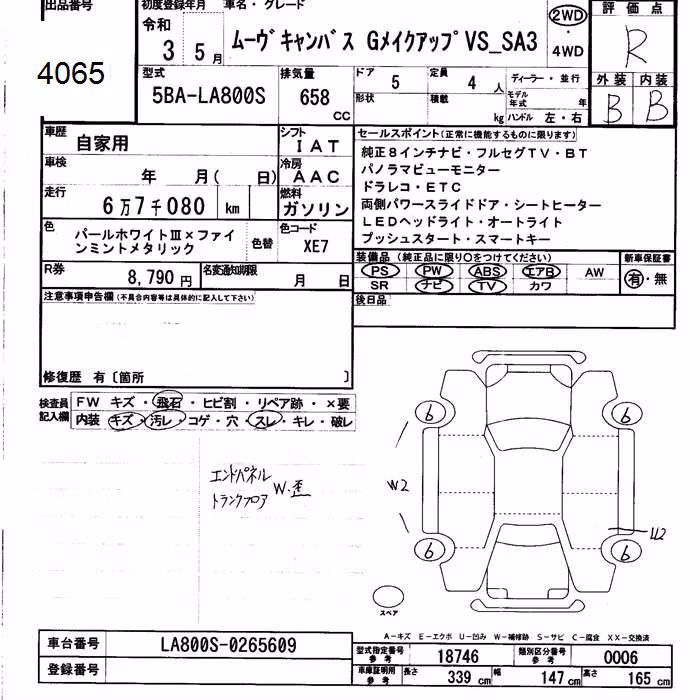 出品番号
4065
初度登録年月
令和
3 5月
車名・グレード
ムーヴキャンバス GメイクアップVS_SA3
2WD
・
4WD
評価点
R
外装 内装
B B
型式
5BA-LA800S
排気量
658 CC
ドア 5
定員 4 人
形状
積載 kg
ディーラー・並行
モデル年式 年
ハンドル 左・右
車歴 自家用
シフト IAT
車検 年 月( 日)
冷房 AAC
走行 6万7千080 km
燃料 ガソリン
色 パールホワイトⅢ×ファイ
ンミントメタリック
色替
色コード XE7
R券 8,790円
名変通知期限 月 日
セールスポイント(正常に機能するものに限ります)
純正8インチナビ・フルセグTV・BT
パノラマビューモニター
ドラレコ・ETC
両側パワースライドドア・シートヒーター
LEDヘッドライト・オートライト
プッシュスタート・スマートキー
装備品(純正品に限り○をつけてください)
PS PW ABS エアB AW
SR ナビ TV カワ
新車保証書
有・無
後日品
注意事項申告欄(不具合内容等は具体的に記入して下さい)
修復歴 有〔箇所 〕
検査員
記入欄
FW キズ・飛石・ヒビ割・リペア跡・×要
内装 キズ・汚レ・コゲ・穴・スレ・キレ・破レ
エンドパネル
トランクフロア
W・歪
6 6
W2
U2
6 6
スペア
A-キズ E-エクボ U-凹み W-補修跡 S-サビ C-腐食 XX-交換済
車台番号 LA800S-0265609
登録番号
型式指定番号
参考
18746
類別区分番号
参考
0006
車庫証明用
参考
長さ 339 cm 幅 147 cm 高さ 165 cm